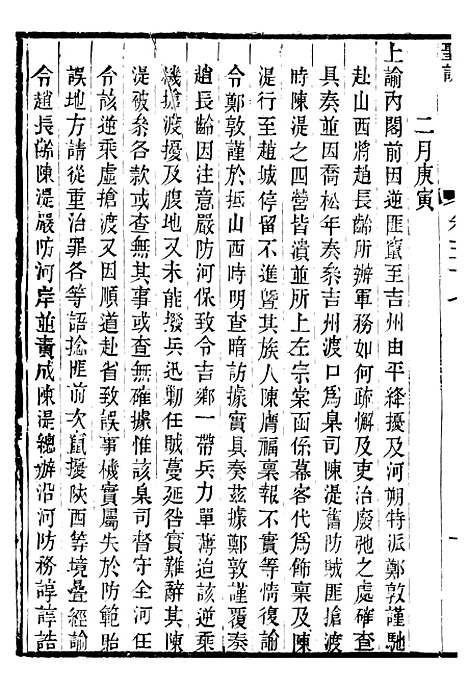 聖訓
二月庚寅
上諭內閣前因逆匪竄至吉州由平絳擾及河朔特派鄭敦謹馳
赴山西將趙長齡所辦軍務如何疏懈及吏治廢弛之處確查
具奏並因喬松年奏參吉州渡口爲臬司陳湜舊防賊匪搶渡
時陳湜之四營皆潰並所上左宗棠函係幕客代爲飾稟及陳
湜行至趙城停留不進曁其族人陳膺福稟報不實等情復諭
令鄭敦謹於抵山西時明查暗訪據實具奏茲據鄭敦謹覆奏
趙長齡因注意嚴防河保致令吉鄉一帶兵力單薄迨該逆乘
機搶渡擾及腹地又未能撥兵迅勦任賊蔓延咎實難辭其陳
湜破參各款或查無其事或查無確據惟該臬司督守全河任
令該逆乘虛搶渡又因順道赴省致誤事機實屬失於防範貽
誤地方請從重治罪各等語捻匪前次竄擾陝西等境疊經諭
令趙長齡陳湜嚴防河岸並責成陳湜總辦沿河防務諄諄誥